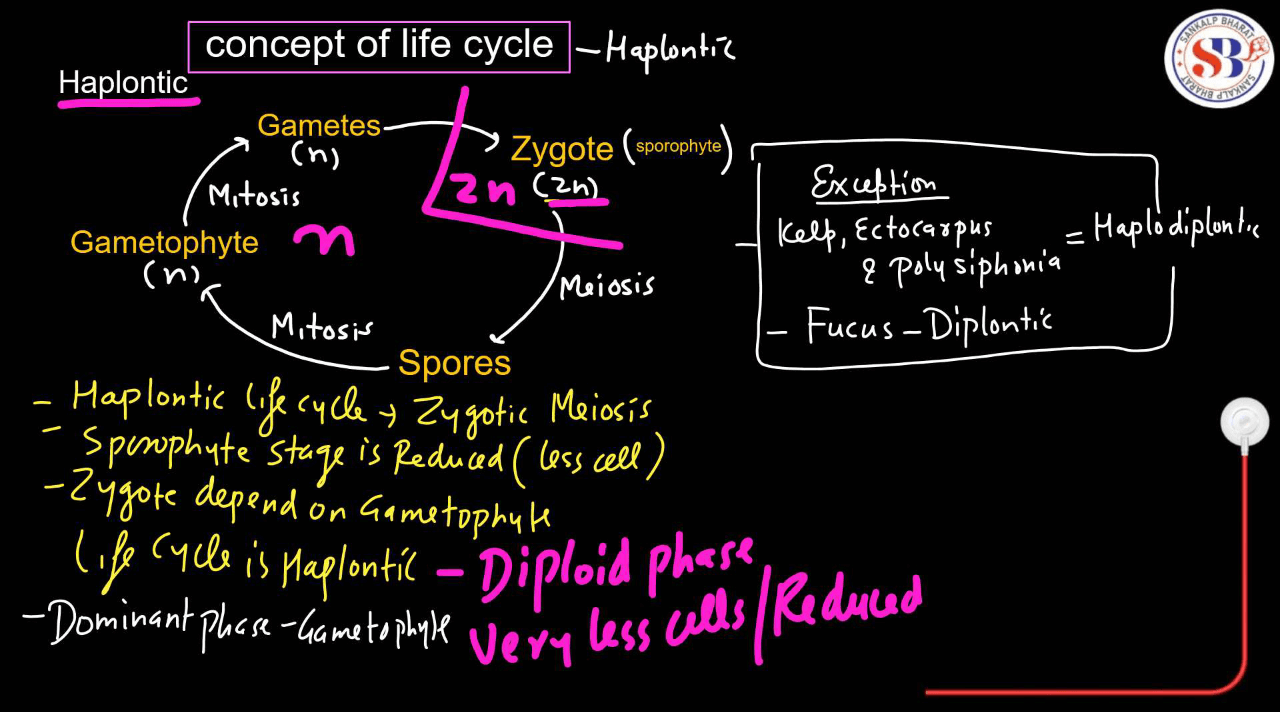 concept of life cycle - Haplontic
Haplontic
SANKALP BHARAT
SB
SANKALP BHARAT
Gametes
(n)
Zygote (sporophyte)
(2n)
2n
Mitosis
Gametophyte
(n)
n
Meiosis
Mitosis
Spores
Exception
- Kelp, Ectocarpus
& Polysiphonia
= Haplodiplontic
- Fucus - Diplontic
- Haplontic Life cycle → Zygotic Meiosis
- Sporophyte stage is Reduced (less cell)
- Zygote depend on Gametophyte
Life Cycle is Haplontic - Diploid phase
- Dominant phase - Gametophyte very less cells/Reduced